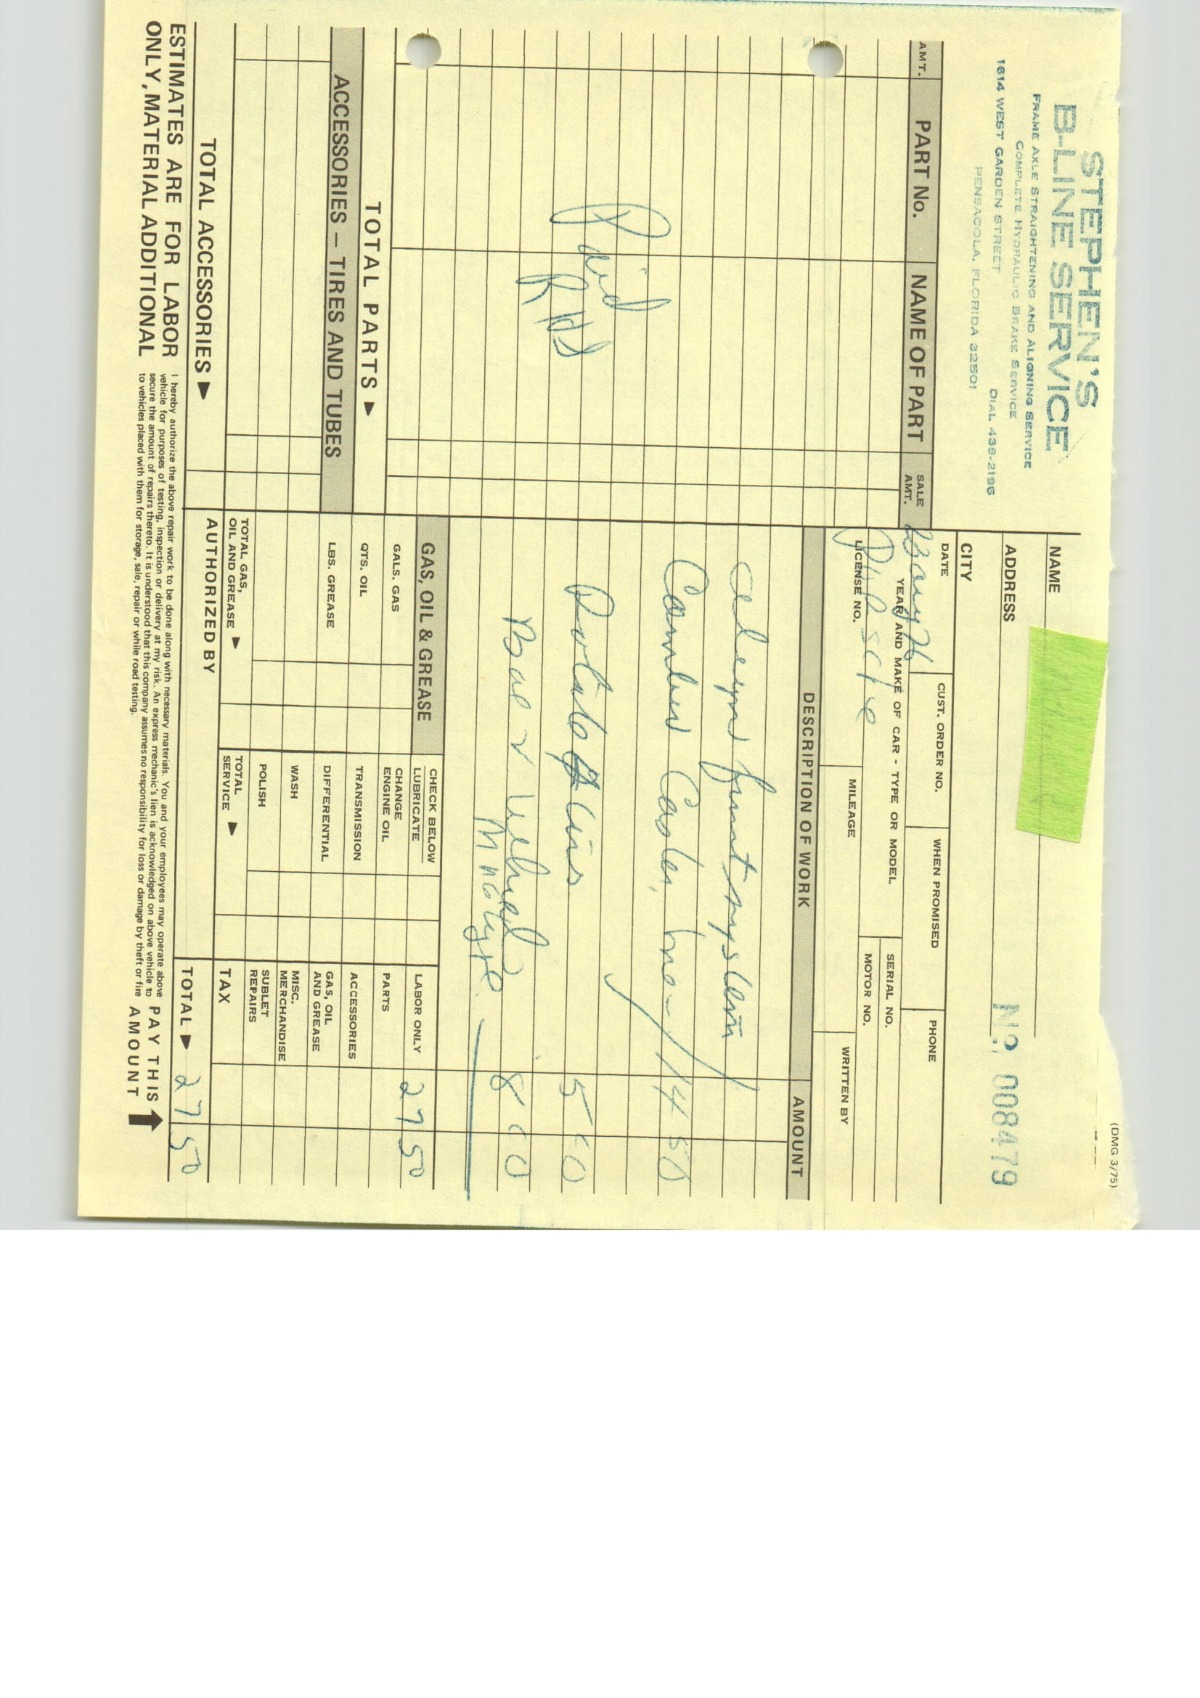 (DMG 3/75)
STEPHEN'S
B-LINE SERVICE
FRAME AXLE STRAIGHTENING AND ALIGNING SERVICE
COMPLETE HYDRAULIC BRAKE SERVICE
1614 WEST GARDEN STREET DIAL 438-2196
PENSACOLA, FLORIDA 32501
NO. 008479
NAME
ADDRESS
CITY
DATE
CUST. ORDER NO.
WHEN PROMISED
PHONE
YEAR AND MAKE OF CAR - TYPE OR MODEL
SERIAL NO.
MOTOR NO.
LICENSE NO.
MILEAGE
WRITTEN BY
AMT. PART No. NAME OF PART SALE AMT.
DESCRIPTION OF WORK AMOUNT
front system
Camber Caster 14 50
5 00
Paid
Bal 2 Wheels 8 00
TOTAL PARTS ►
ACCESSORIES — TIRES AND TUBES
TOTAL ACCESSORIES ►
GAS, OIL & GREASE
GALS. GAS
QTS. OIL
LBS. GREASE
TOTAL GAS, OIL AND GREASE ►
CHECK BELOW
LUBRICATE
CHANGE ENGINE OIL
TRANSMISSION
DIFFERENTIAL
WASH
POLISH
TOTAL SERVICE ►
LABOR ONLY 27 50
PARTS
ACCESSORIES
GAS, OIL AND GREASE
MISC. MERCHANDISE
SUBLET REPAIRS
TAX
AUTHORIZED BY
TOTAL ► 27 50
ESTIMATES ARE FOR LABOR
ONLY, MATERIAL ADDITIONAL
I hereby authorize the above repair work to be done along with necessary materials. You and your employees may operate above
vehicle for purposes of testing, inspection or delivery at my risk. An express mechanic's lien is acknowledged on above vehicle to
secure the amount of repairs thereto. It is understood that this company assumes no responsibility for loss or damage by theft or fire
to vehicles placed with them for storage, sale, repair or while road testing.
PAY THIS
AMOUNT